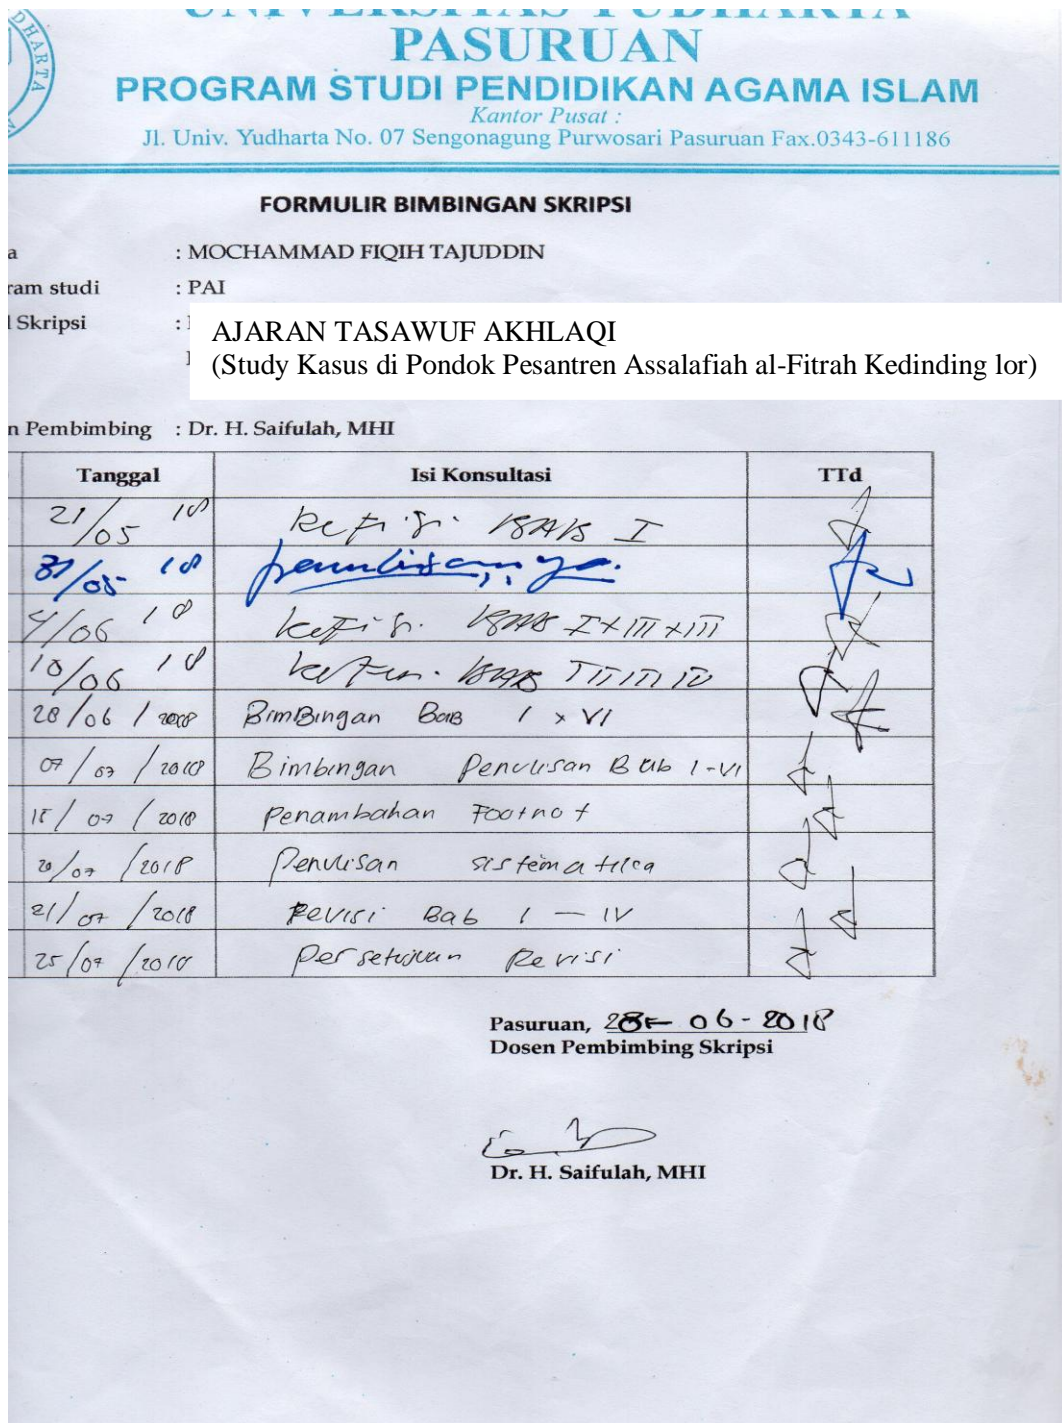 UNIVERSITAS YUDHARTA
PASURUAN
PROGRAM STUDI PENDIDIKAN AGAMA ISLAM
Kantor Pusat :
Jl. Univ. Yudharta No. 07 Sengonagung Purwosari Pasuruan Fax.0343-611186
DHARTA
FORMULIR BIMBINGAN SKRIPSI
a : MOCHAMMAD FIQIH TAJUDDIN
ram studi : PAI
l Skripsi :
AJARAN TASAWUF AKHLAQI
(Study Kasus di Pondok Pesantren Assalafiah al-Fitrah Kedinding lor)
n Pembimbing : Dr. H. Saifulah, MHI
Tanggal Isi Konsultasi TTd
21/05 18 BAB I
31/05 18
4/06 18 BAB I + III + III
10/06 18 BAB
28/06 / 2018 BimBingan BaB I x VI
07/07 / 2018 Bimbingan Penulisan Bab I-VI
15/07 / 2018 Penambahan Footnot
20/07 / 2018 Penulisan sistematika
21/07 / 2018 Revisi Bab I - IV
25/07 / 2018 Persetujuan Revisi
Pasuruan, 28 - 06 - 2018
Dosen Pembimbing Skripsi
Dr. H. Saifulah, MHI